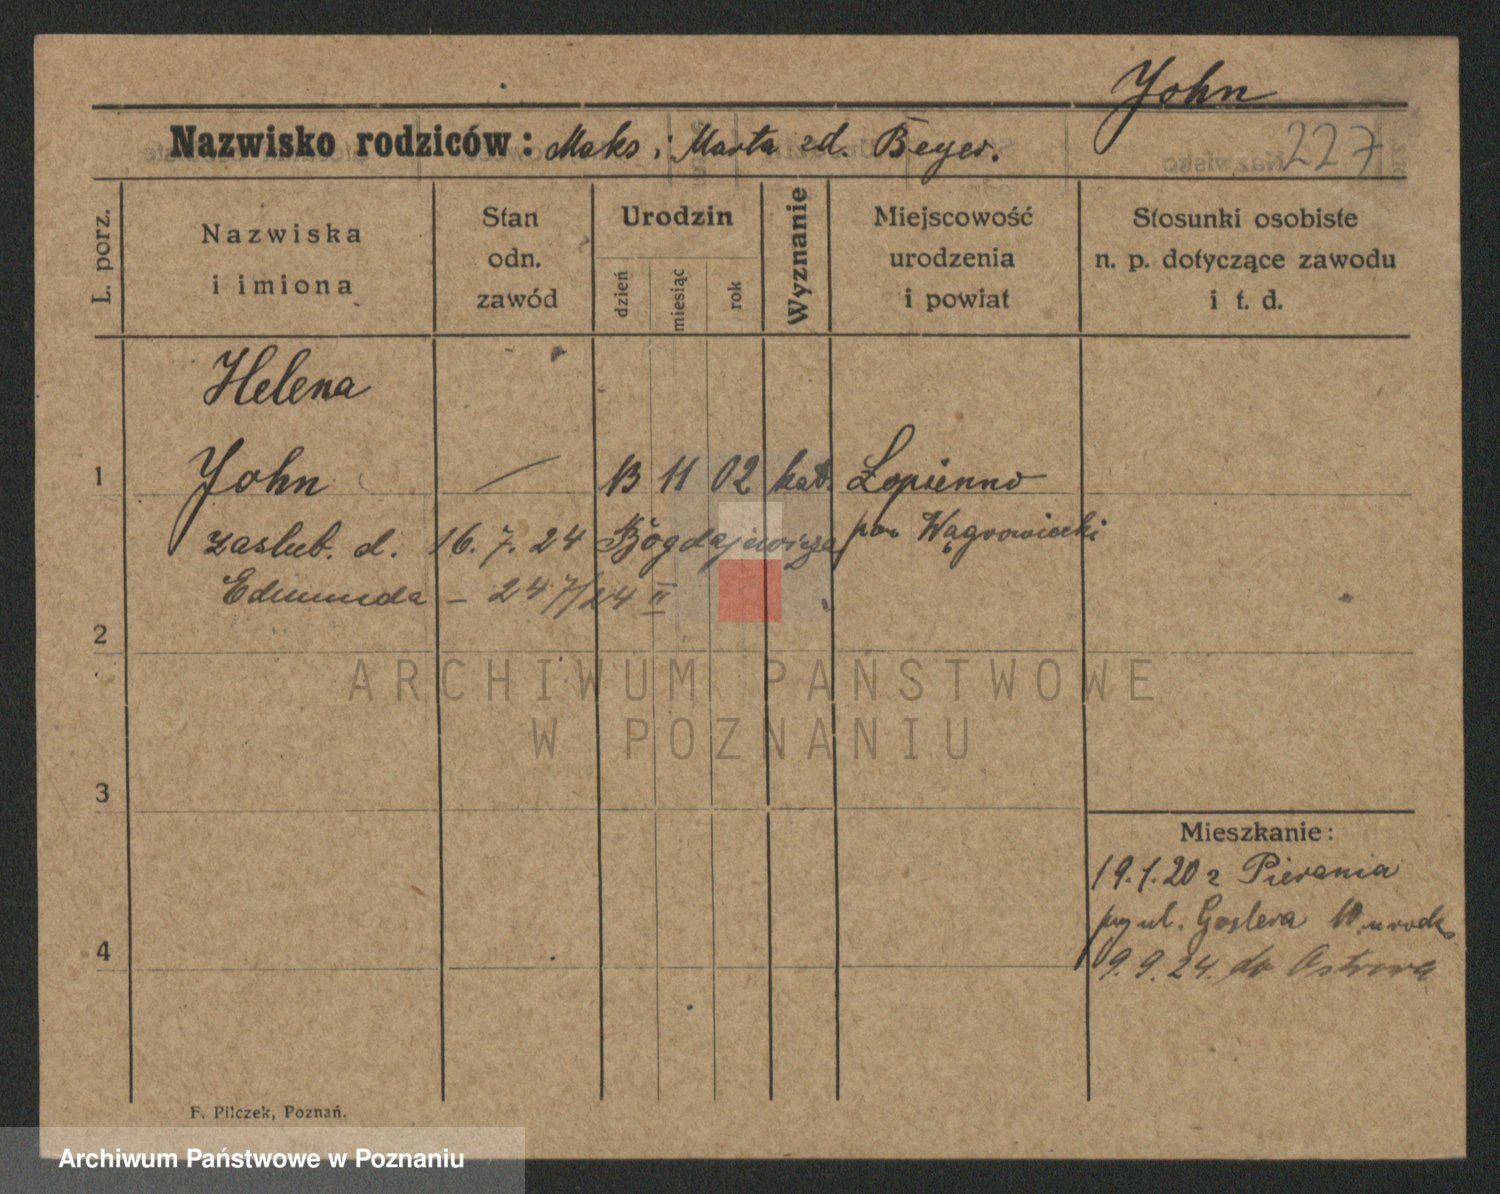 John
Nazwisko rodziców: Maks i Marta zd. Beyer.
227
L. porz.
Nazwiska
i imiona
Stan
odn.
zawód
Urodzin
dzień
miesiąc
rok
Wyznanie
Miejscowość
urodzenia
i powiat
Stosunki osobiste
n. p. dotyczące zawodu
i t. d.
Helena
1 John — 13 11 02 kat. Łopienno
zaślub. d. 16. 7. 24 Bogdajewicza pow Wągrowiecki
Edmunda — 24 7/24 II
2
ARCHIWUM PAŃSTWOWE
W POZNANIU
3
Mieszkanie:
19.1.20 z Pierania
przy ul. Goslera 10
4
9.9.24. do Ostrowa
F. Pilczek, Poznań.
Archiwum Państwowe w Poznaniu